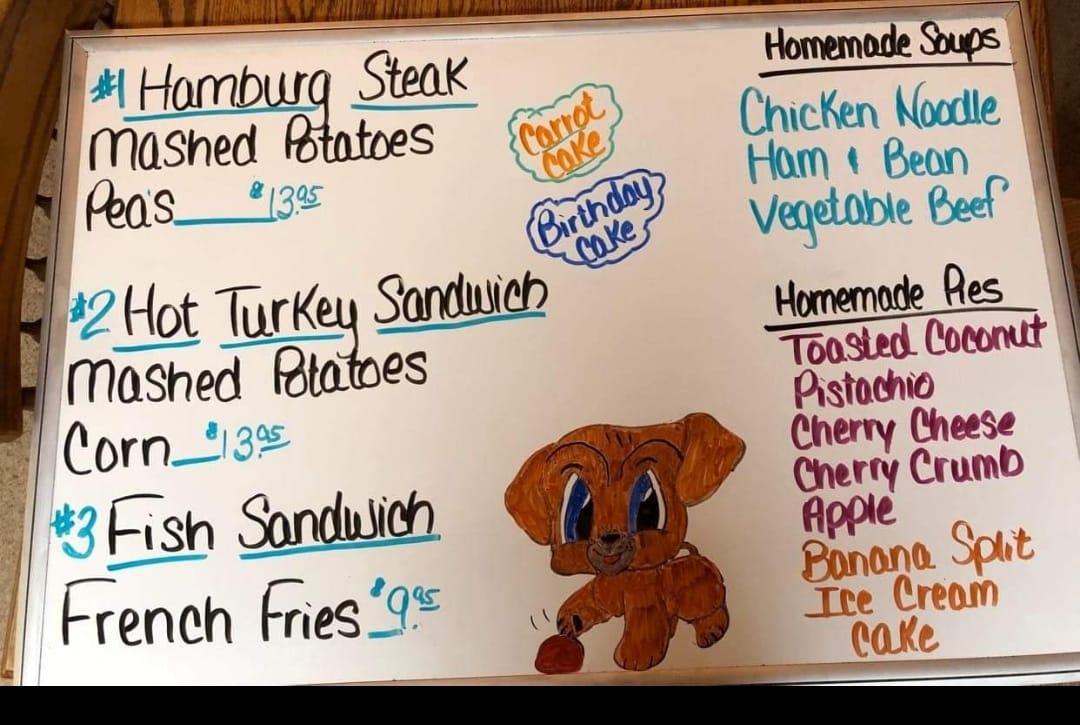 #1 Hamburg Steak
Mashed Potatoes
Pea's $13.95
#2 Hot Turkey Sandwich
Mashed Potatoes
Corn $13.95
#3 Fish Sandwich
French Fries $9.95
Carrot
Cake
Birthday
Cake
Homemade Soups
Chicken Noodle
Ham & Bean
Vegetable Beef
Homemade Pies
Toasted Coconut
Pistachio
Cherry Cheese
Cherry Crumb
Apple
Banana Split
Ice Cream
Cake